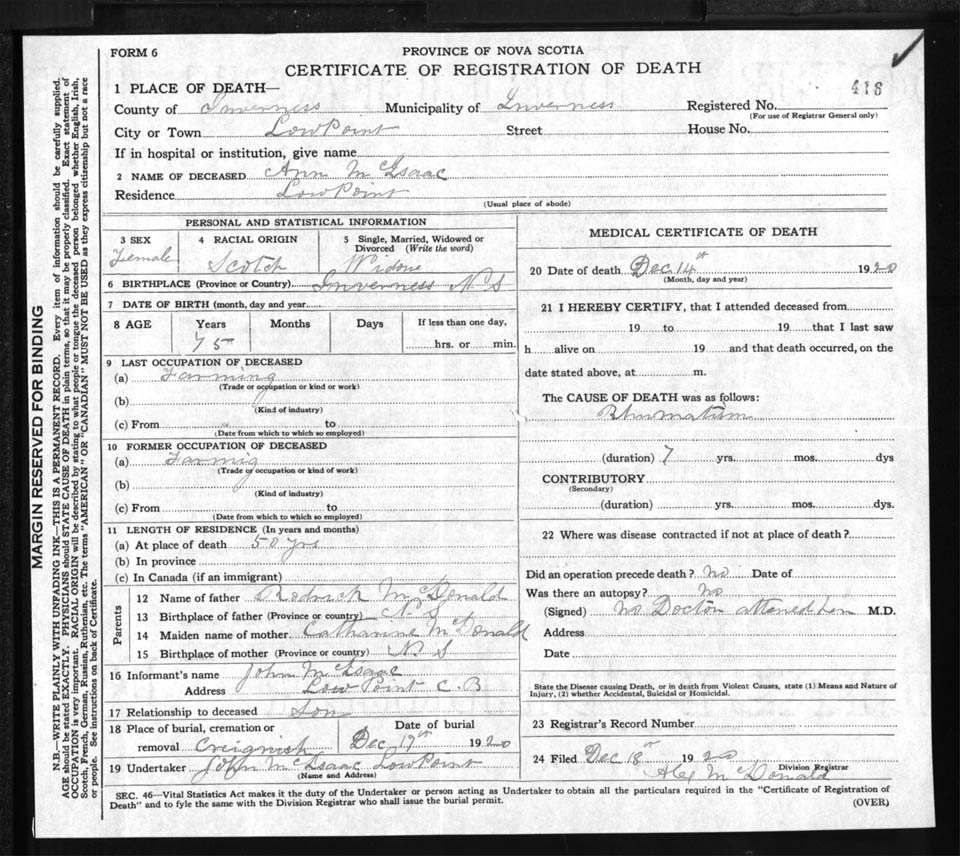 FORM 6
PROVINCE OF NOVA SCOTIA
CERTIFICATE OF REGISTRATION OF DEATH
1 PLACE OF DEATH—
County of Inverness Municipality of Inverness Registered No. 418
(For use of Registrar General only)
City or Town Low Point Street House No.
If in hospital or institution, give name
2 NAME OF DECEASED Ann McIsaac
Residence Low Point
(Usual place of abode)
PERSONAL AND STATISTICAL INFORMATION
3 SEX 4 RACIAL ORIGIN 5 Single, Married, Widowed or
Divorced (Write the word)
Female Scotch Widow
6 BIRTHPLACE (Province or Country) Inverness N S
7 DATE OF BIRTH (month, day and year
8 AGE Years Months Days If less than one day,
75 hrs. or min.
9 LAST OCCUPATION OF DECEASED
(a) Farming
(Trade or occupation or kind or work)
(b)
(Kind of industry)
(c) From to
(Date from which to which so employed)
10 FORMER OCCUPATION OF DECEASED
(a) Farmig
(Trade or occupation or kind of work)
(b)
(Kind of industry)
(c) From to
(Date from which to which so employed)
11 LENGTH OF RESIDENCE (In years and months)
(a) At place of death 50 yrs
(b) In province
(c) In Canada (if an immigrant)
Parents
12 Name of father Rodrick McDonald
13 Birthplace of father (Province or country) N. S
14 Maiden name of mother Catharine McDonald
15 Birthplace of mother (Province or country) N S
16 Informant's name John McIsaac
Address Low Point C. B
17 Relationship to deceased Son
18 Place of burial, cremation or Date of burial
removal Creignish Dec 17th 1920
19 Undertaker John McIsaac Low Point
(Name and Address)
MEDICAL CERTIFICATE OF DEATH
20 Date of death Dec 14th 1920
(Month, day and year)
21 I HEREBY CERTIFY, that I attended deceased from
19 to 19 that I last saw
h alive on 19 and that death occurred, on the
date stated above, at m.
The CAUSE OF DEATH was as follows:
Rhumatism
(duration) 7 yrs. mos. dys
CONTRIBUTORY
(Secondary)
(duration) yrs. mos. dys.
22 Where was disease contracted if not at place of death?
Did an operation precede death? No Date of
Was there an autopsy? No
(Signed) No Doctor attened her M.D.
Address
Date
State the Disease causing Death, or in death from Violent Causes, state (1) Means and Nature of
Injury, (2) whether Accidental, Suicidal or Homicidal.
23 Registrar's Record Number
24 Filed Dec 18th 1920
Division Registrar
Alex McDonald
SEC. 46—Vital Statistics Act makes it the duty of the Undertaker or person acting as Undertaker to obtain all the particulars required in the "Certificate of Registration of
Death" and to fyle the same with the Division Registrar who shall issue the burial permit.
(OVER)
MARGIN RESERVED FOR BINDING
N.B.—WRITE PLAINLY WITH UNFADING INK—THIS IS A PERMANENT RECORD. Every item of information should be carefully supplied.
AGE should be stated EXACTLY. PHYSICIANS should STATE CAUSE OF DEATH in plain terms, so that it may be properly classified. Exact statement of
OCCUPATION is very important. RACIAL ORIGIN will be described by stating to what people or tongue the deceased person belonged whether English, Irish,
Scotch, French, German, Russian, Ruthenian, etc. The terms "AMERICAN" OR "CANADIAN" MUST NOT BE USED as they express citizenship but not a race
or people. See instructions on back of Certificate.